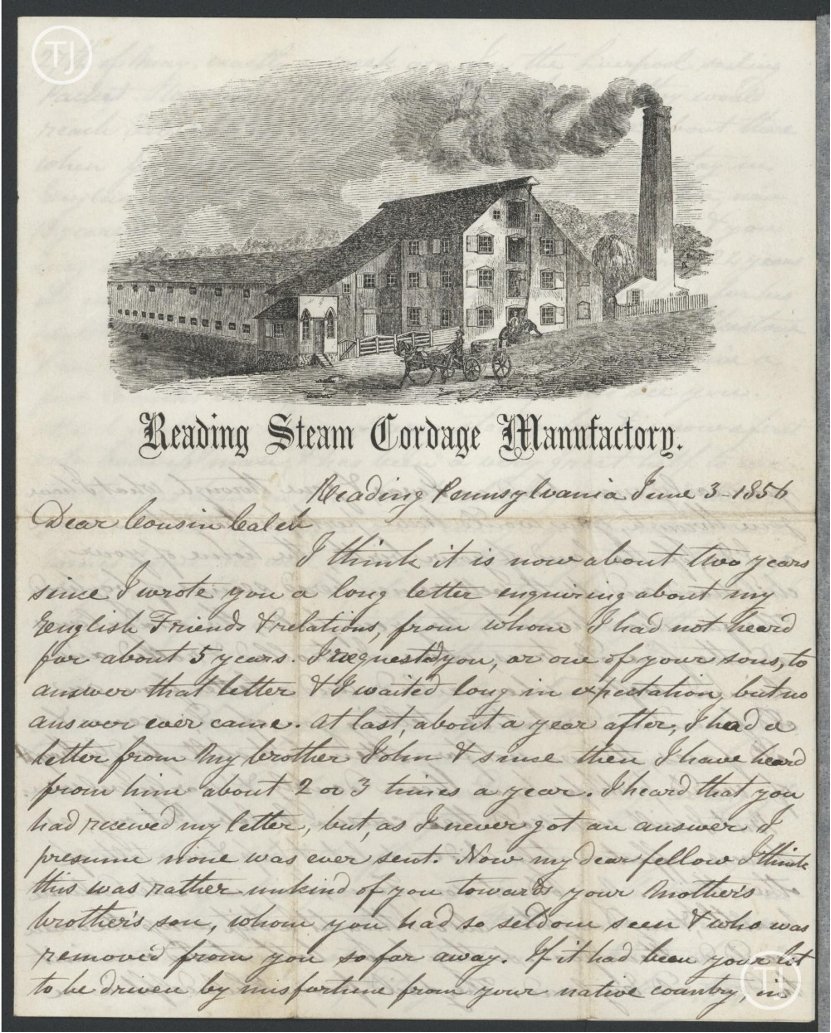 TJ
Reading Steam Cordage Manufactory.
Reading Pennsylvania June 3 - 1856
Dear Cousin Caleb
I think it is now about two years
since I wrote you a long letter enquiring about my
English Friends & relations, from whom I had not heard
for about 5 years. I requested you, or one of your sons, to
answer that letter & I waited long in expectation, but no
answer ever came. At last, about a year after, I had a
letter from my brother John & since then I have heard
from him about 2 or 3 times a year. I heard that you
had received my letter, but, as I never got an answer I
presume none was ever sent. Now my dear fellow I think
this was rather unkind of you towards your Mother's
brother's son, whom you had so seldom seen & who was
remov'd from you so far away. If it had been your lot
to be driven by misfortune from your native country, in
TJ